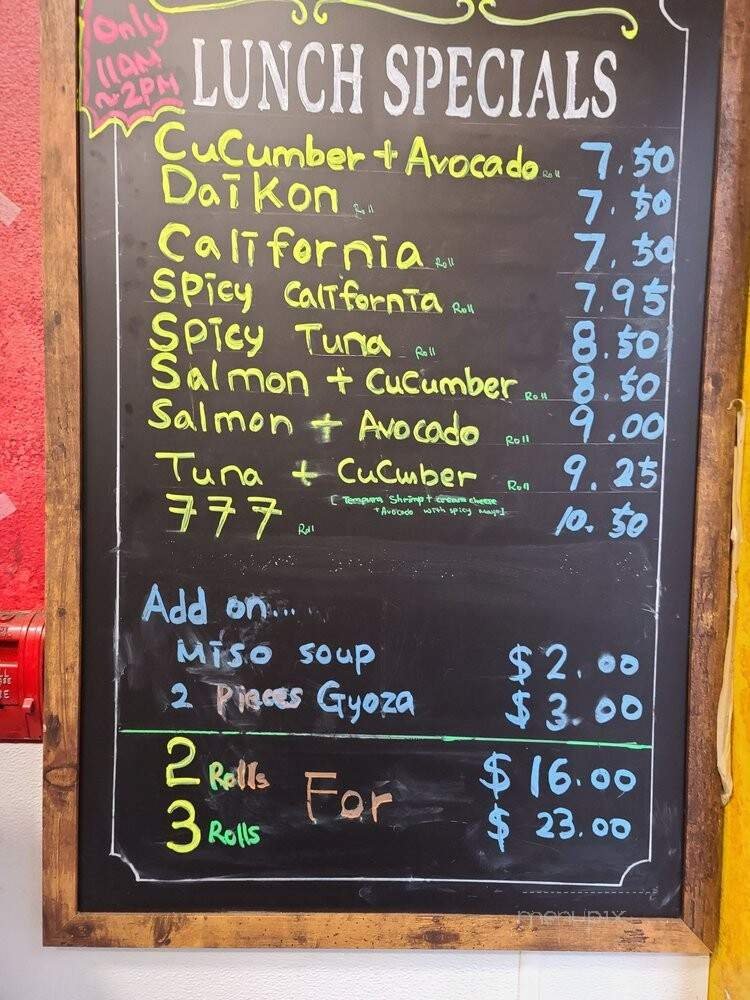 Only
11AM
~2PM
LUNCH SPECIALS
CuCumber + Avocado Roll 7.50
Daikon Roll 7.50
California Roll 7.50
Spicy California Roll 7.95
Spicy Tuna Roll 8.50
Salmon + CuCumber Roll 8.50
Salmon + Avocado Roll 9.00
Tuna + CuCumber Roll 9.25
777 Roll [Tempura Shrimp + cream cheese 10.50
+ Avocado with spicy mayo]
Add on...
Miso soup $2.00
2 Pieces Gyoza $3.00
2 Rolls For $16.00
3 Rolls $23.00
menupix